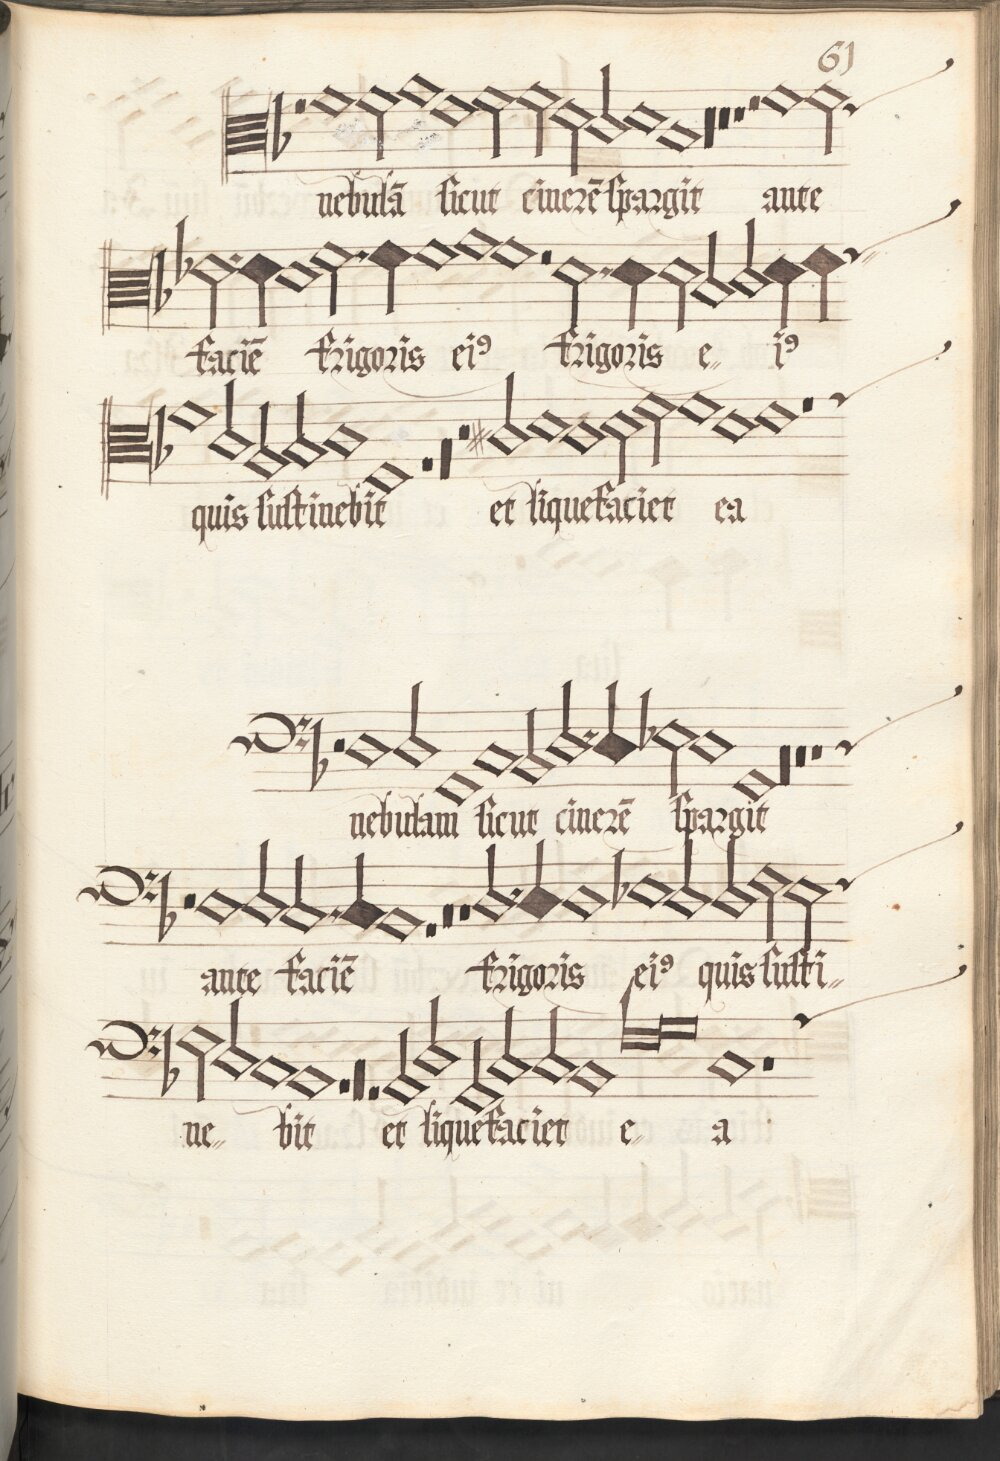 61
nebulā sicut cinerē spargit ante
faciē frigoris eiꝰ frigoris e„ iꝰ
quis sustinebit et liquefaciet ea
nebulam sicut cinerē spargit
ante faciē frigoris eiꝰ quis susti„
ne„ bit et liquefaciet e„ a